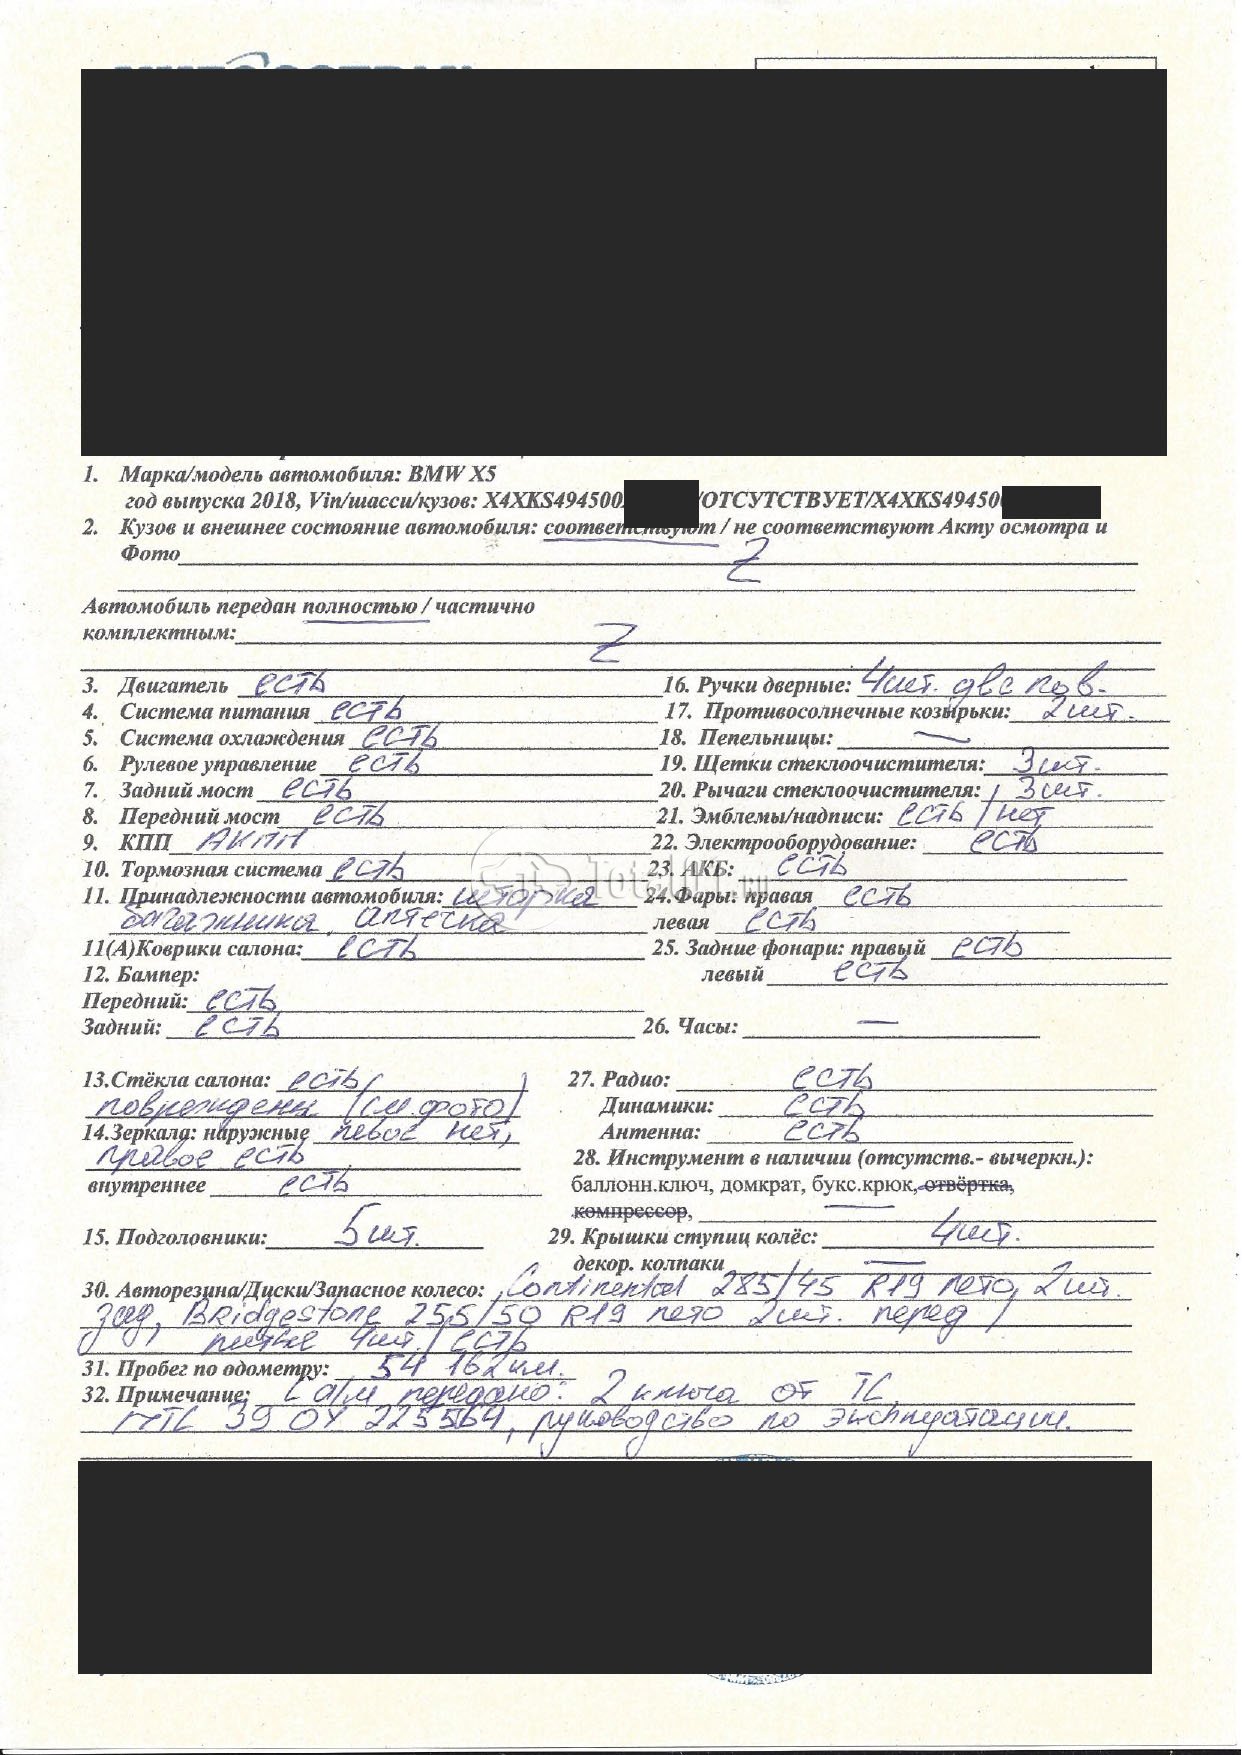 1. Марка/модель автомобиля: BMW X5
год выпуска 2018, Vin/шасси/кузов: X4XKS494500 /ОТСУТСТВУЕТ/X4XKS49450
2. Кузов и внешнее состояние автомобиля: соответствуют / не соответствуют Акту осмотра и
Фото Z
Автомобиль передан полностью / частично
комплектным: Z
3. Двигатель есть
4. Система питания есть
5. Система охлаждения есть
6. Рулевое управление есть
7. Задний мост есть
8. Передний мост есть
9. КПП АКПП
10. Тормозная система есть
11. Принадлежности автомобиля: шторка
багажника, аптечка
11(А)Коврики салона: есть
12. Бампер:
Передний: есть
Задний: есть
13.Стёкла салона: есть/
поврежден (см. фото)
14.Зеркала: наружные левое нет,
правое есть
внутреннее есть
15. Подголовники: 5 шт.
16. Ручки дверные: 4шт. две пов.
17. Противосолнечные козырьки: 2 шт.
18. Пепельницы: —
19. Щетки стеклоочистителя: 3 шт.
20. Рычаги стеклоочистителя: 3 шт.
21. Эмблемы/надписи: есть / нет
22. Электрооборудование: есть
23. АКБ: есть
24.Фары: правая есть
левая есть
25. Задние фонари: правый есть
левый есть
26. Часы: —
27. Радио: есть
Динамики: есть
Антенна: есть
28. Инструмент в наличии (отсутств.- вычеркн.):
баллонн.ключ, домкрат, букс.крюк, отвёртка,
компрессор, —
29. Крышки ступиц колёс: 4шт.
декор. колпаки —
30. Авторезина/Диски/Запасное колесо: Continental 285/45 R19 лето, 2 шт.
зад, Bridgestone 255/50 R19 лето 2шт. перед /
литые 4шт / есть
31. Пробег по одометру: 54 162 км.
32. Примечание: С а/м передано: 2 ключа от ТС,
ПТС 39 ОУ 225564, руководство по эксплуатации.
Total01.ru